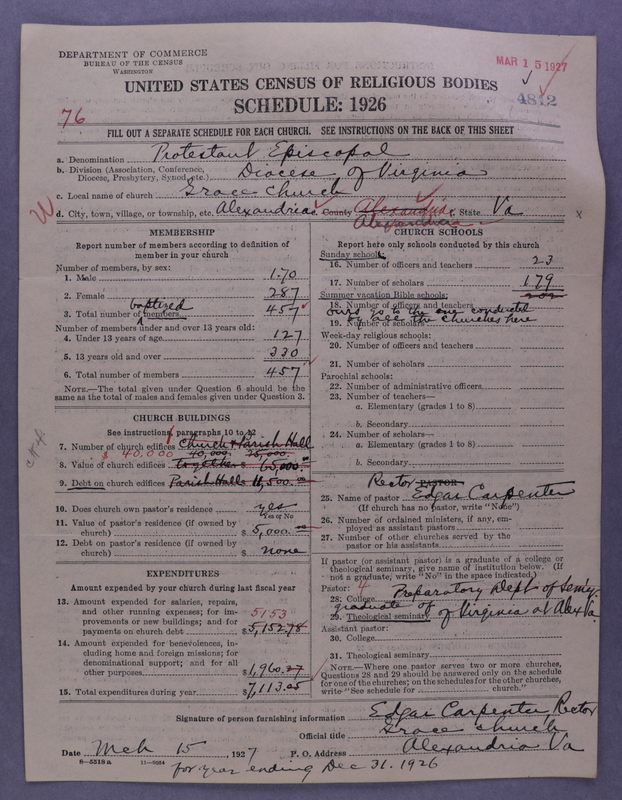 DEPARTMENT OF COMMERCE
BUREAU OF THE CENSUS
WASHINGTON
MAR 15 1927
4812
UNITED STATES CENSUS OF RELIGIOUS BODIES
SCHEDULE: 1926
76
FILL OUT A SEPARATE SCHEDULE FOR EACH CHURCH. SEE INSTRUCTIONS ON THE BACK OF THIS SHEET
a. Denomination Protestant Episcopal
b. Division (Association, Conference, Diocese, Presbytery, Synod, etc.) Diocese of Virginia
c. Local name of church Grace Church
d. City, town, village, or township, etc. Alexandria e. County Alexandria f. State Va
Alexandria
W
x
MEMBERSHIP
Report number of members according to definition of
member in your church
Number of members, by sex:
1. Male 170
2. Female 287
baptized
3. Total number of members 457
Number of members under and over 13 years old:
4. Under 13 years of age 127
5. 13 years old and over 330
6. Total number of members 457
NOTE.—The total given under Question 6 should be the
same as the total of males and females given under Question 3.
CHURCH BUILDINGS
See instructions, paragraphs 10 to 12
1
7. Number of church edifices Church & Parish Hall
$ 40,000 40,000. 25,000.
8. Value of church edifices together $ 65,000.00
9. Debt on church edifices Parish Hall 11,500.00
10. Does church own pastor's residence? yes
Yes or No
11. Value of pastor's residence (if owned by
church) $ 5,000.00
12. Debt on pastor's residence (if owned by
church) $ none
EXPENDITURES
Amount expended by your church during last fiscal year
13. Amount expended for salaries, repairs,
and other running expenses; for im-
provements or new buildings; and for
payments on church debt $5,152.78
5153
14. Amount expended for benevolences, in-
cluding home and foreign missions; for
denominational support; and for all
other purposes $1,960.27
15. Total expenditures during year $7,113.05
CHURCH SCHOOLS
Report here only schools conducted by this church
Sunday schools:
16. Number of officers and teachers 23
17. Number of scholars 179
202
Summer vacation Bible schools:
18. Number of officers and teachers
ours go to the one conducted
19. Number of scholars
by all the churches here
Week-day religious schools:
20. Number of officers and teachers
21. Number of scholars
Parochial schools:
22. Number of administrative officers
23. Number of teachers—
a. Elementary (grades 1 to 8)
b. Secondary
24. Number of scholars—
a. Elementary (grades 1 to 8)
b. Secondary
Rector PASTOR
25. Name of pastor Edgar Carpenter
(If church has no pastor, write "None")
26. Number of ordained ministers, if any, em-
ployed as assistant pastors
27. Number of other churches served by the
pastor or his assistants
If pastor (or assistant pastor) is a graduate of a college or
theological seminary, give name of institution below. (If
not a graduate, write "No" in the space indicated.)
Pastor: 4
28. College Preparatory Dept of Semy.
graduate of
29. Theological seminary of Virginia at Alex Va.
Assistant pastor:
30. College
31. Theological seminary
NOTE.—Where one pastor serves two or more churches,
Questions 28 and 29 should be answered only on the schedule
for one of the churches; on the schedules for the other churches,
write "See schedule for church."
Signature of person furnishing information Edgar Carpenter Rector
Official title Grace Church
Date Mch 15, 1927 P. O. Address Alexandria Va
8—5518a 11—9884
for year ending Dec 31. 1926